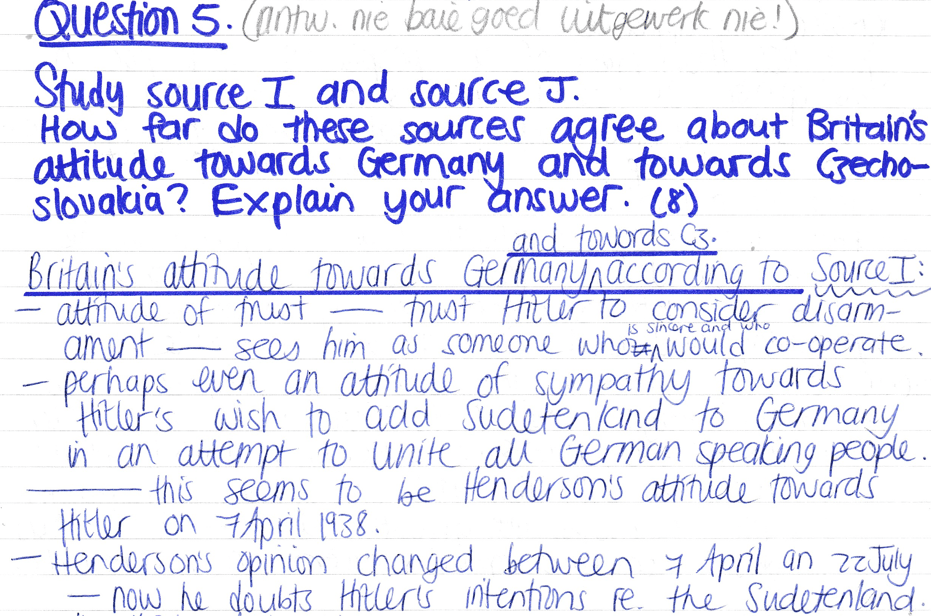 Question 5. (Antw. nie baie goed uitgewerk nie!)
Study source I and source J.
How far do these sources agree about Britain's
attitude towards Germany and towards Czecho-
slovakia? Explain your answer. (8)
and towards Cz.
Britain's attitude towards Germany,^according to Source I:
— attitude of trust — trust Hitler to consider disarm-
is sincere and who
ament — sees him as someone who ^ would co-operate.
— perhaps even an attitude of sympathy towards
Hitler's wish to add Sudetenland to Germany
in an attempt to unite all German speaking people.
——— this seems to be Henderson's attitude towards
Hitler on 7 April 1938.
— Henderson's opinion changed between 7 April an 22 July
— now he doubts Hitler's intentions re. the Sudetenland.